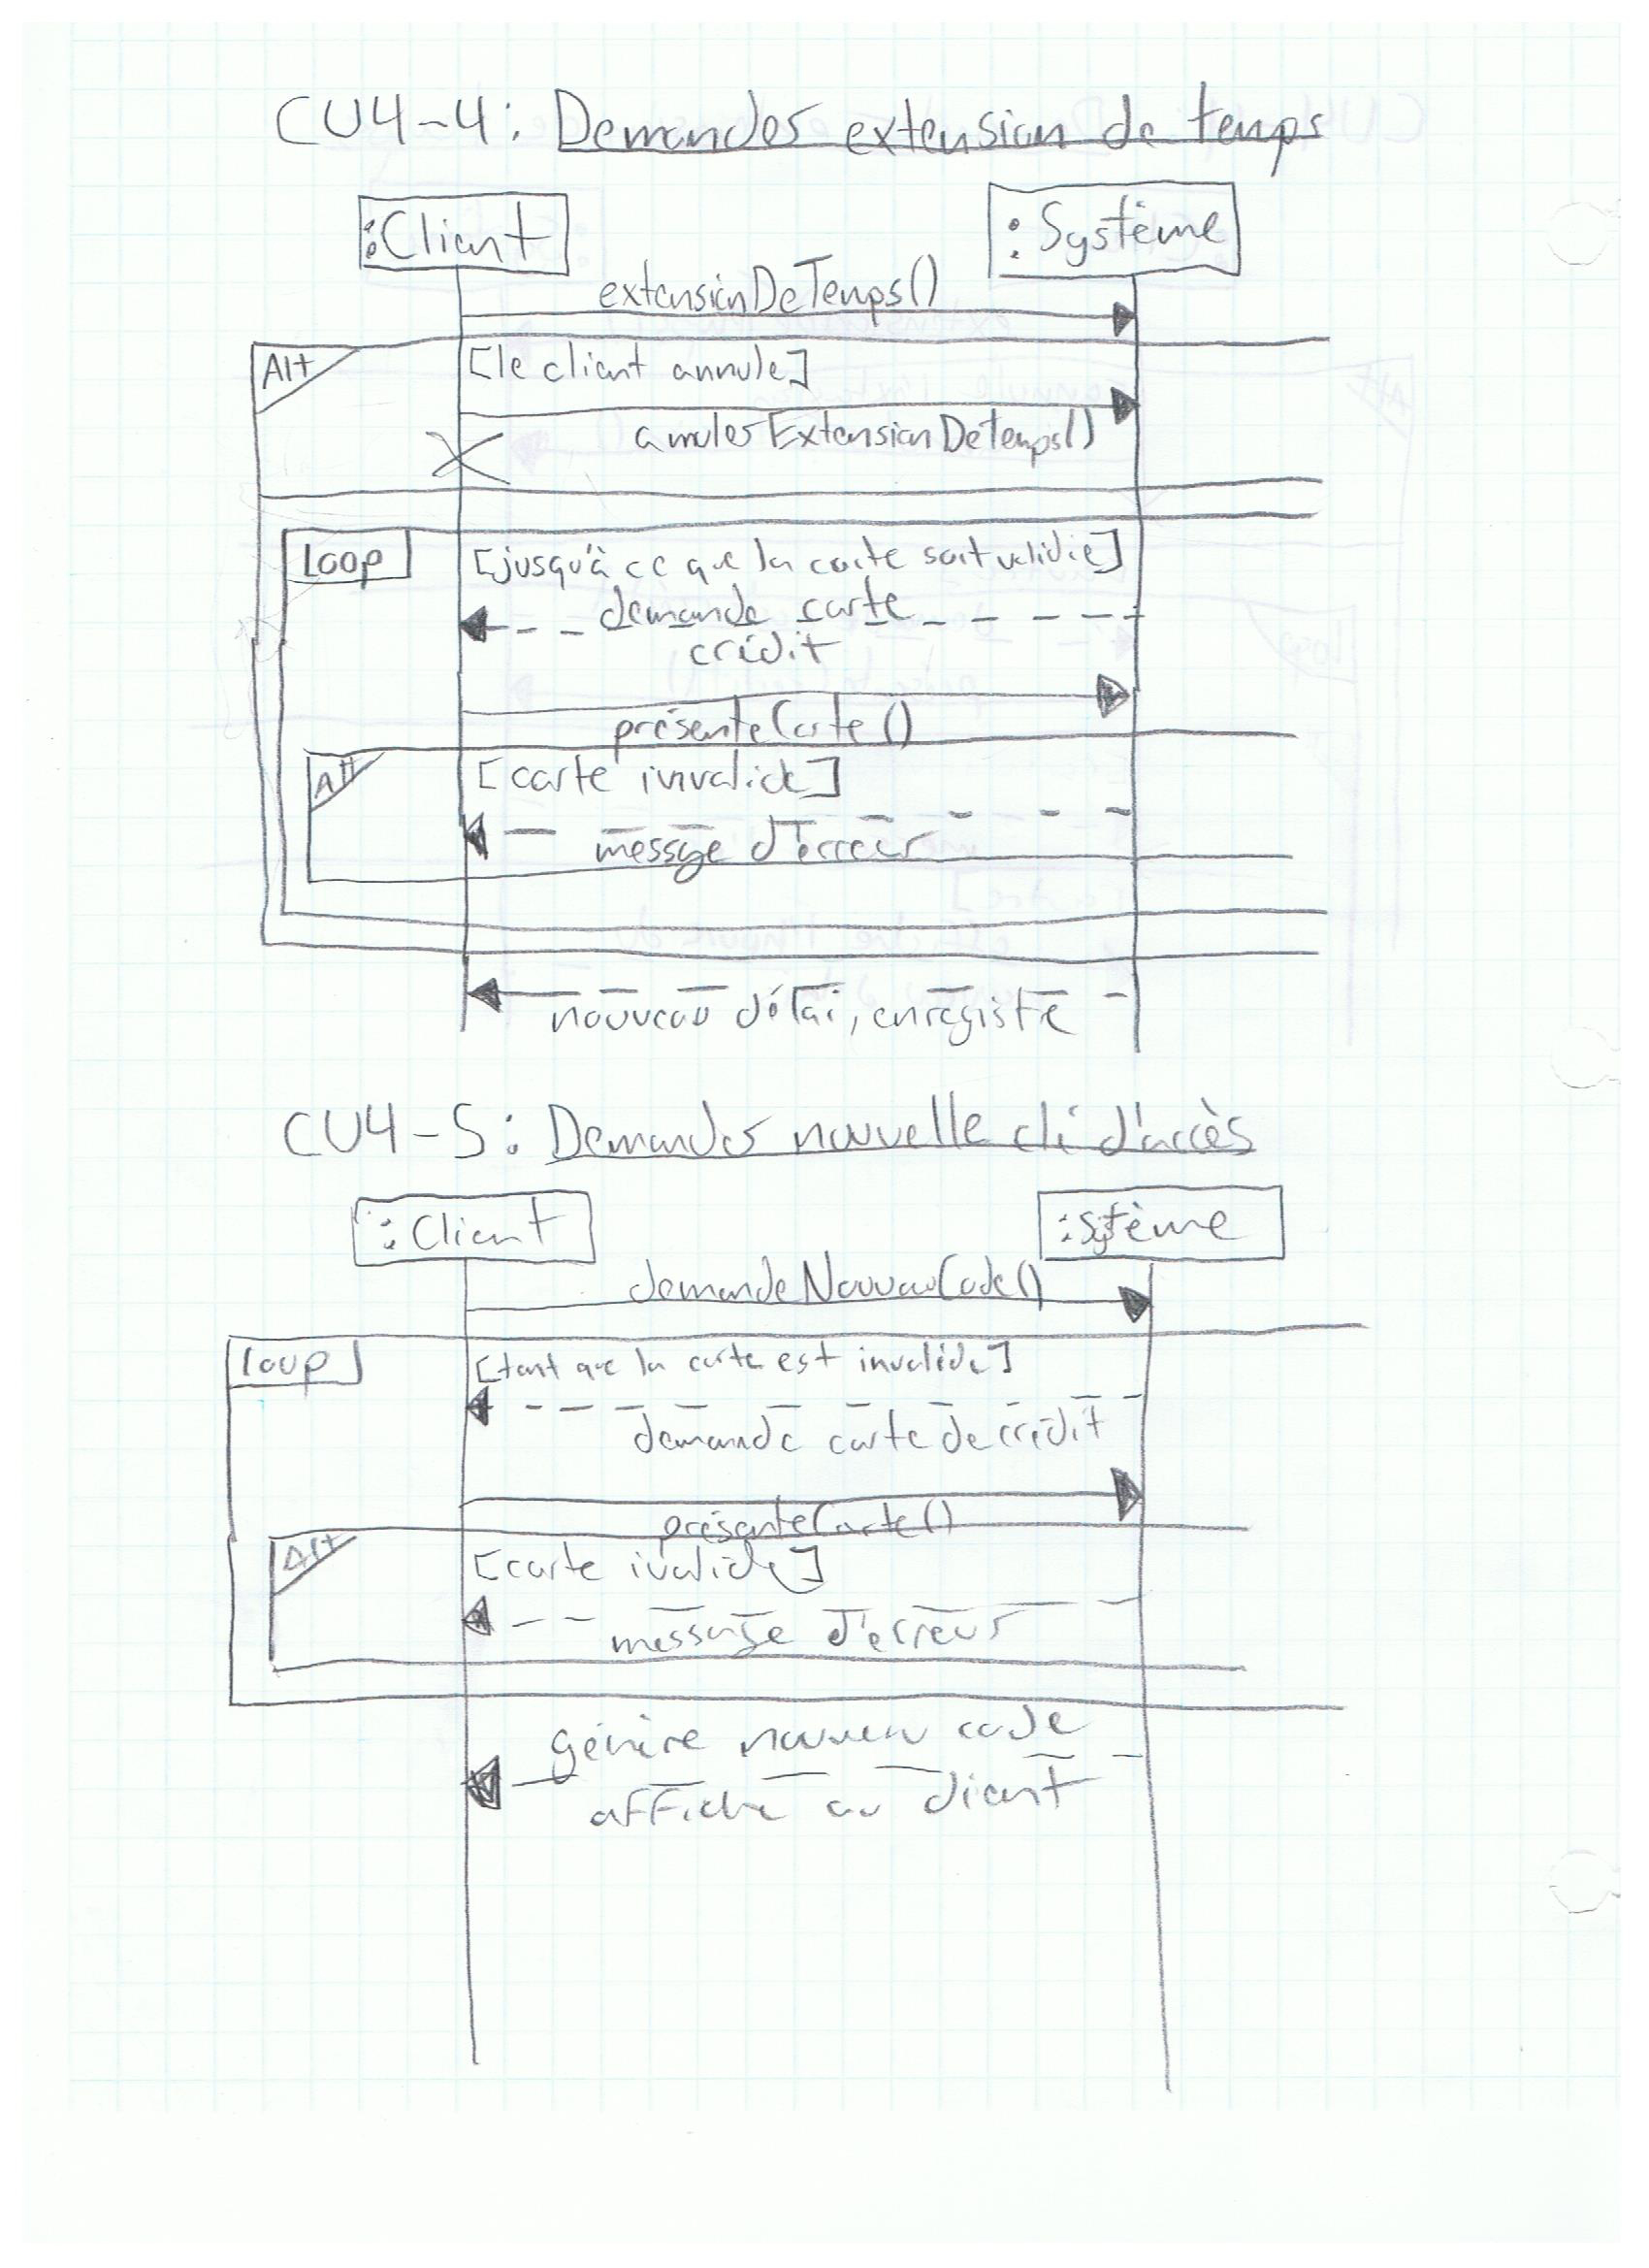 CU4-4: Demander extension de temps
:Client
:Système
extensionDeTemps()
Alt
[le client annule]
annulerExtensionDeTemps()
loop
[jusqu'à ce que la carte soit validé]
demande carte
crédit
présenteCarte()
Alt
[carte invalide]
message d'erreur
nouveau délai, enregistré
CU4-5: Demander nouvelle clé d'accès
:Client
:Système
demandeNouveauCode()
loop
[tant que la carte est invalide]
demande carte de crédit
présenteCarte()
Alt
[carte ivalide]
message d'erreur
génère nouveau code
affiche au client